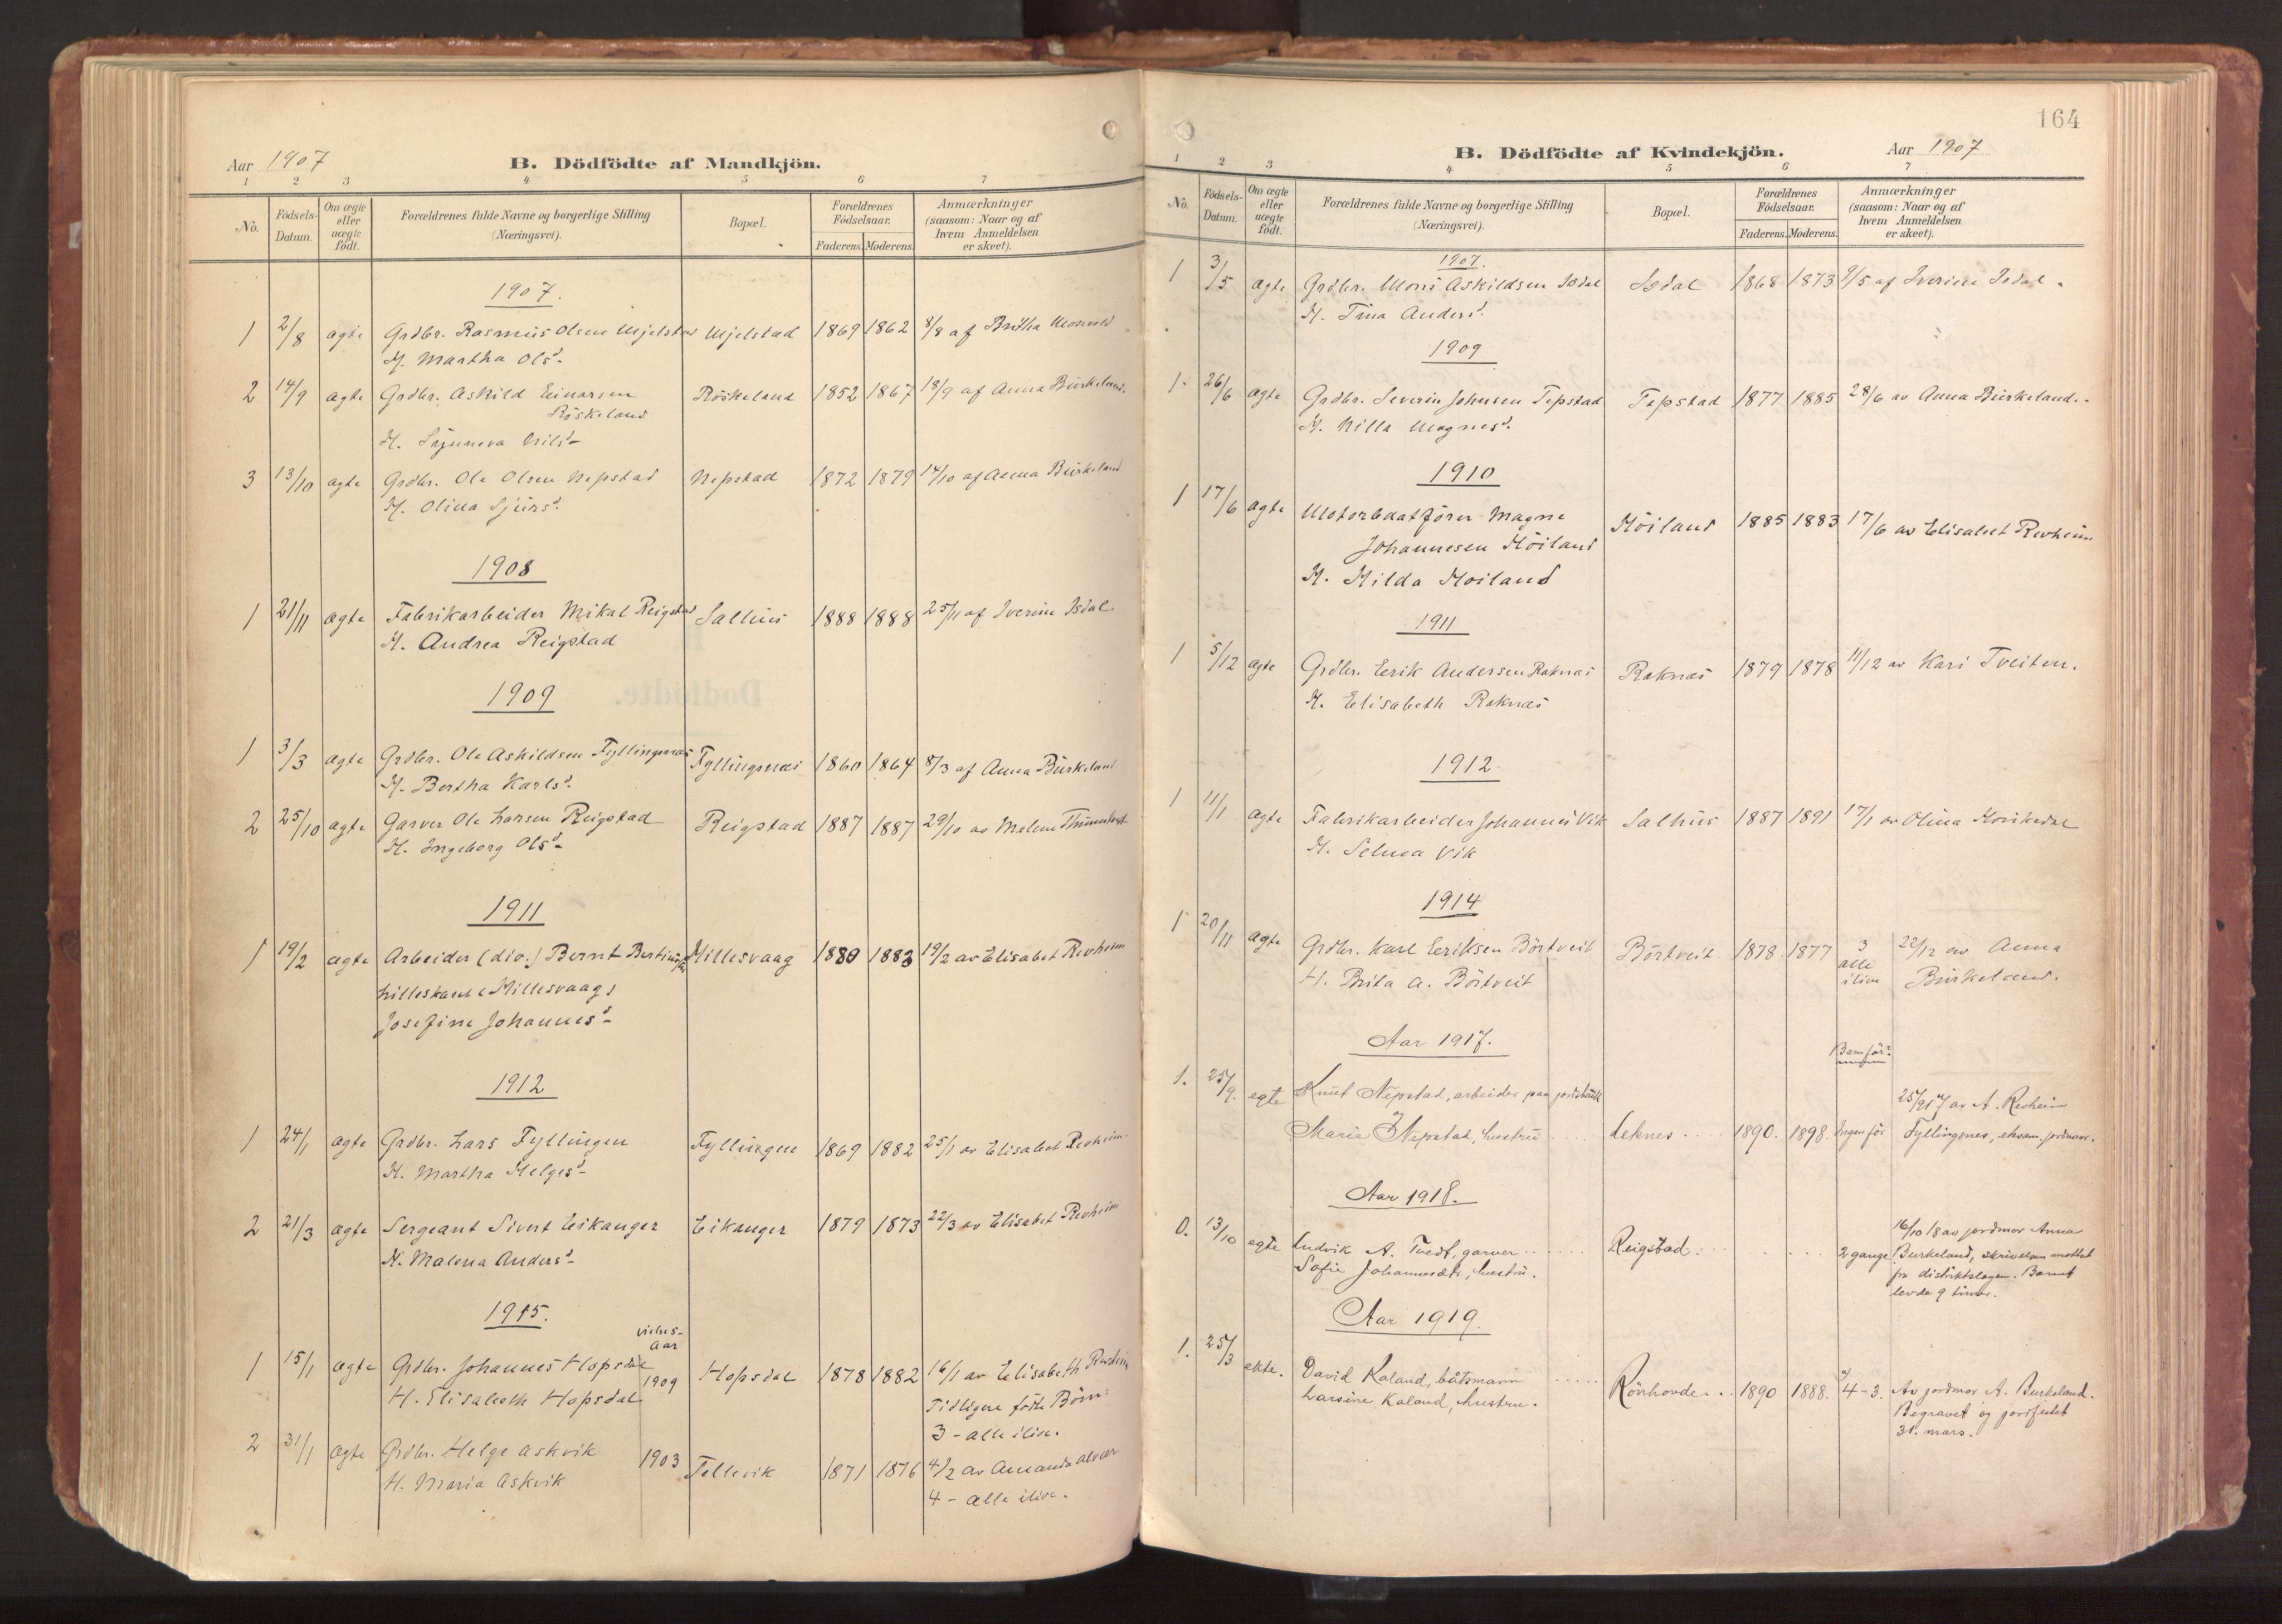 Aar 1907
B. Dödfödte af Mandkjön.
1 2 3 4 5 6 7
No. Födsels-Datum. Om ægte eller uægte födt. Forældrenes fulde Navne og borgerlige Stilling (Næringsvei). Bopæl. Forældrenes Födselsaar. Faderens. Moderens. Anmærkninger (saasom: Naar og af hvem Anmeldelsen er skeet).
1907.
1 2/8 ægte Grdbr. Rasmus Olsen Mjelstad Mjelstad 1869 1862 8/8 af Britha
M. Martha Olsd.
2 14/9 ægte Grdbr. Askild Einarsen Röskeland 1852 1867 18/9 af Anna Burkeland.
Röskeland
H. Sygneva Nilsd.
3 13/10 ægte Grdbr. Ole Olsen Nepstad Nepstad 1872 1879 14/10 af Anna Burkeland
H. Olina Sjursd.
1908
1 21/11 ægte Fabrikarbeider Mikal Reigstad Salhus 1888 1888 25/11 af Iverine Isdal
H. Andrea Reigstad
1909
1 3/3 ægte Grdbr. Ole Askildsen Fyllingsnæs Fyllingsnæs 1860 1864 8/3 af Anna Burkeland
H. Bertha Karlsd.
2 25/10 ægte Garver Ole Larsen Reigstad Reigstad 1887 1887 29/10 av Malene
H. Ingeborg Olsd.
1911
1 19/2 ægte Arbeider (div.) Bernt Hillesvaag 1880 1883 19/2 av Elisabet Revheim
Lilleskaret (Hillesvaag)
Josefine Johannesd.
1912
1 24/1 ægte Grdbr. Lars Fyllingen Fyllingen 1869 1882 25/1 av Elisabet Revheim
H. Martha Helgesd.
2 21/3 ægte Sergeant Sivert Eikanger Eikanger 1879 1873 22/3 av Elisabet Revheim
H. Malena Andersd.
1915.
vielses-
aar
1 15/1 ægte Grdbr. Johannes Hopsdal 1909 Hopsdal 1878 1882 16/1 av Elisabeth Revheim
H. Elisabeth Hopsdal Tidligere födte Börn:
3 - alle ilive.
2 31/1 ægte Grdbr. Helge Askvik 1903 Tellevik 1871 1876 4/2 av Amanda Alver
H. Maria Askvik 4 - alle ilive.
164
B. Dödfödte af Kvindekjön.
Aar 1907
1 2 3 4 5 6 7
No. Födsels-Datum. Om ægte eller uægte födt. Forældrenes fulde Navne og borgerlige Stilling (Næringsvei). Bopæl. Forældrenes Födselsaar. Faderens. Moderens. Anmærkninger (saasom: Naar og af hvem Anmeldelsen er skeet).
1907.
1 3/5 ægte Grdbr. Mons Askildsen Isdal Isdal 1868 1873 9/5 af Iverine Isdal.
H. Tina Andersd.
1909
1. 26/6 ægte Grdbr. Severin Johnsen Tepstad Tepstad 1877 1885 28/6 av Anna Burkeland.
H. Nilla Magnesd.
1910
1 17/6 ægte Motorbaatförer Magne Höiland 1885 1883 17/6 av Elisabet Revheim
Johannesen Höiland
H. Hilda Höiland
1911
1 5/12 ægte Grdbr. Eerik Andersen Raknæs Raknæs 1879 1878 11/12 av Kari Tveiten.
H. Elisabeth Raknæs
1912
1 11/1 ægte Fabrikarbeider Johannes Vik Salhus 1887 1891 17/1 av Olina
H. Selma Vik
1914
1 20/11 ægte Grdbr. Karl Eeriksen Börtveit Börtveit 1878 1877 3 alle ilive 22/12 av Anna
H. Brita A. Börtveit Burkeland.
Aar 1917.
Barn för?
1. 25/9. egte Knut Nepstad, arbeider paa jordebruk 25/9 17 av A. Revheim
Marie Nepstad, hustru Leknes 1890. 1898. Ingen för Fyllingsnes, eksam. jordmor.
Aar 1918.
0. 13/10 egte Ludvik A. Tvedt, garver Reigstad 2 gange 16/10 18 av jordmor Anna
Sofie Johannesdtr, hustru. Burkeland, skrivelsen mottat
fra distriktslægen. Barnet
levde 9 timer.
Aar 1919.
1. 25/3 ekte. David Kaland, båtsmann Rönhovde 1890 1888. 4-3. Av jordmor A. Burkeland.
Larsine Kaland, hustru. Begravet og jordfestet
31. mars.